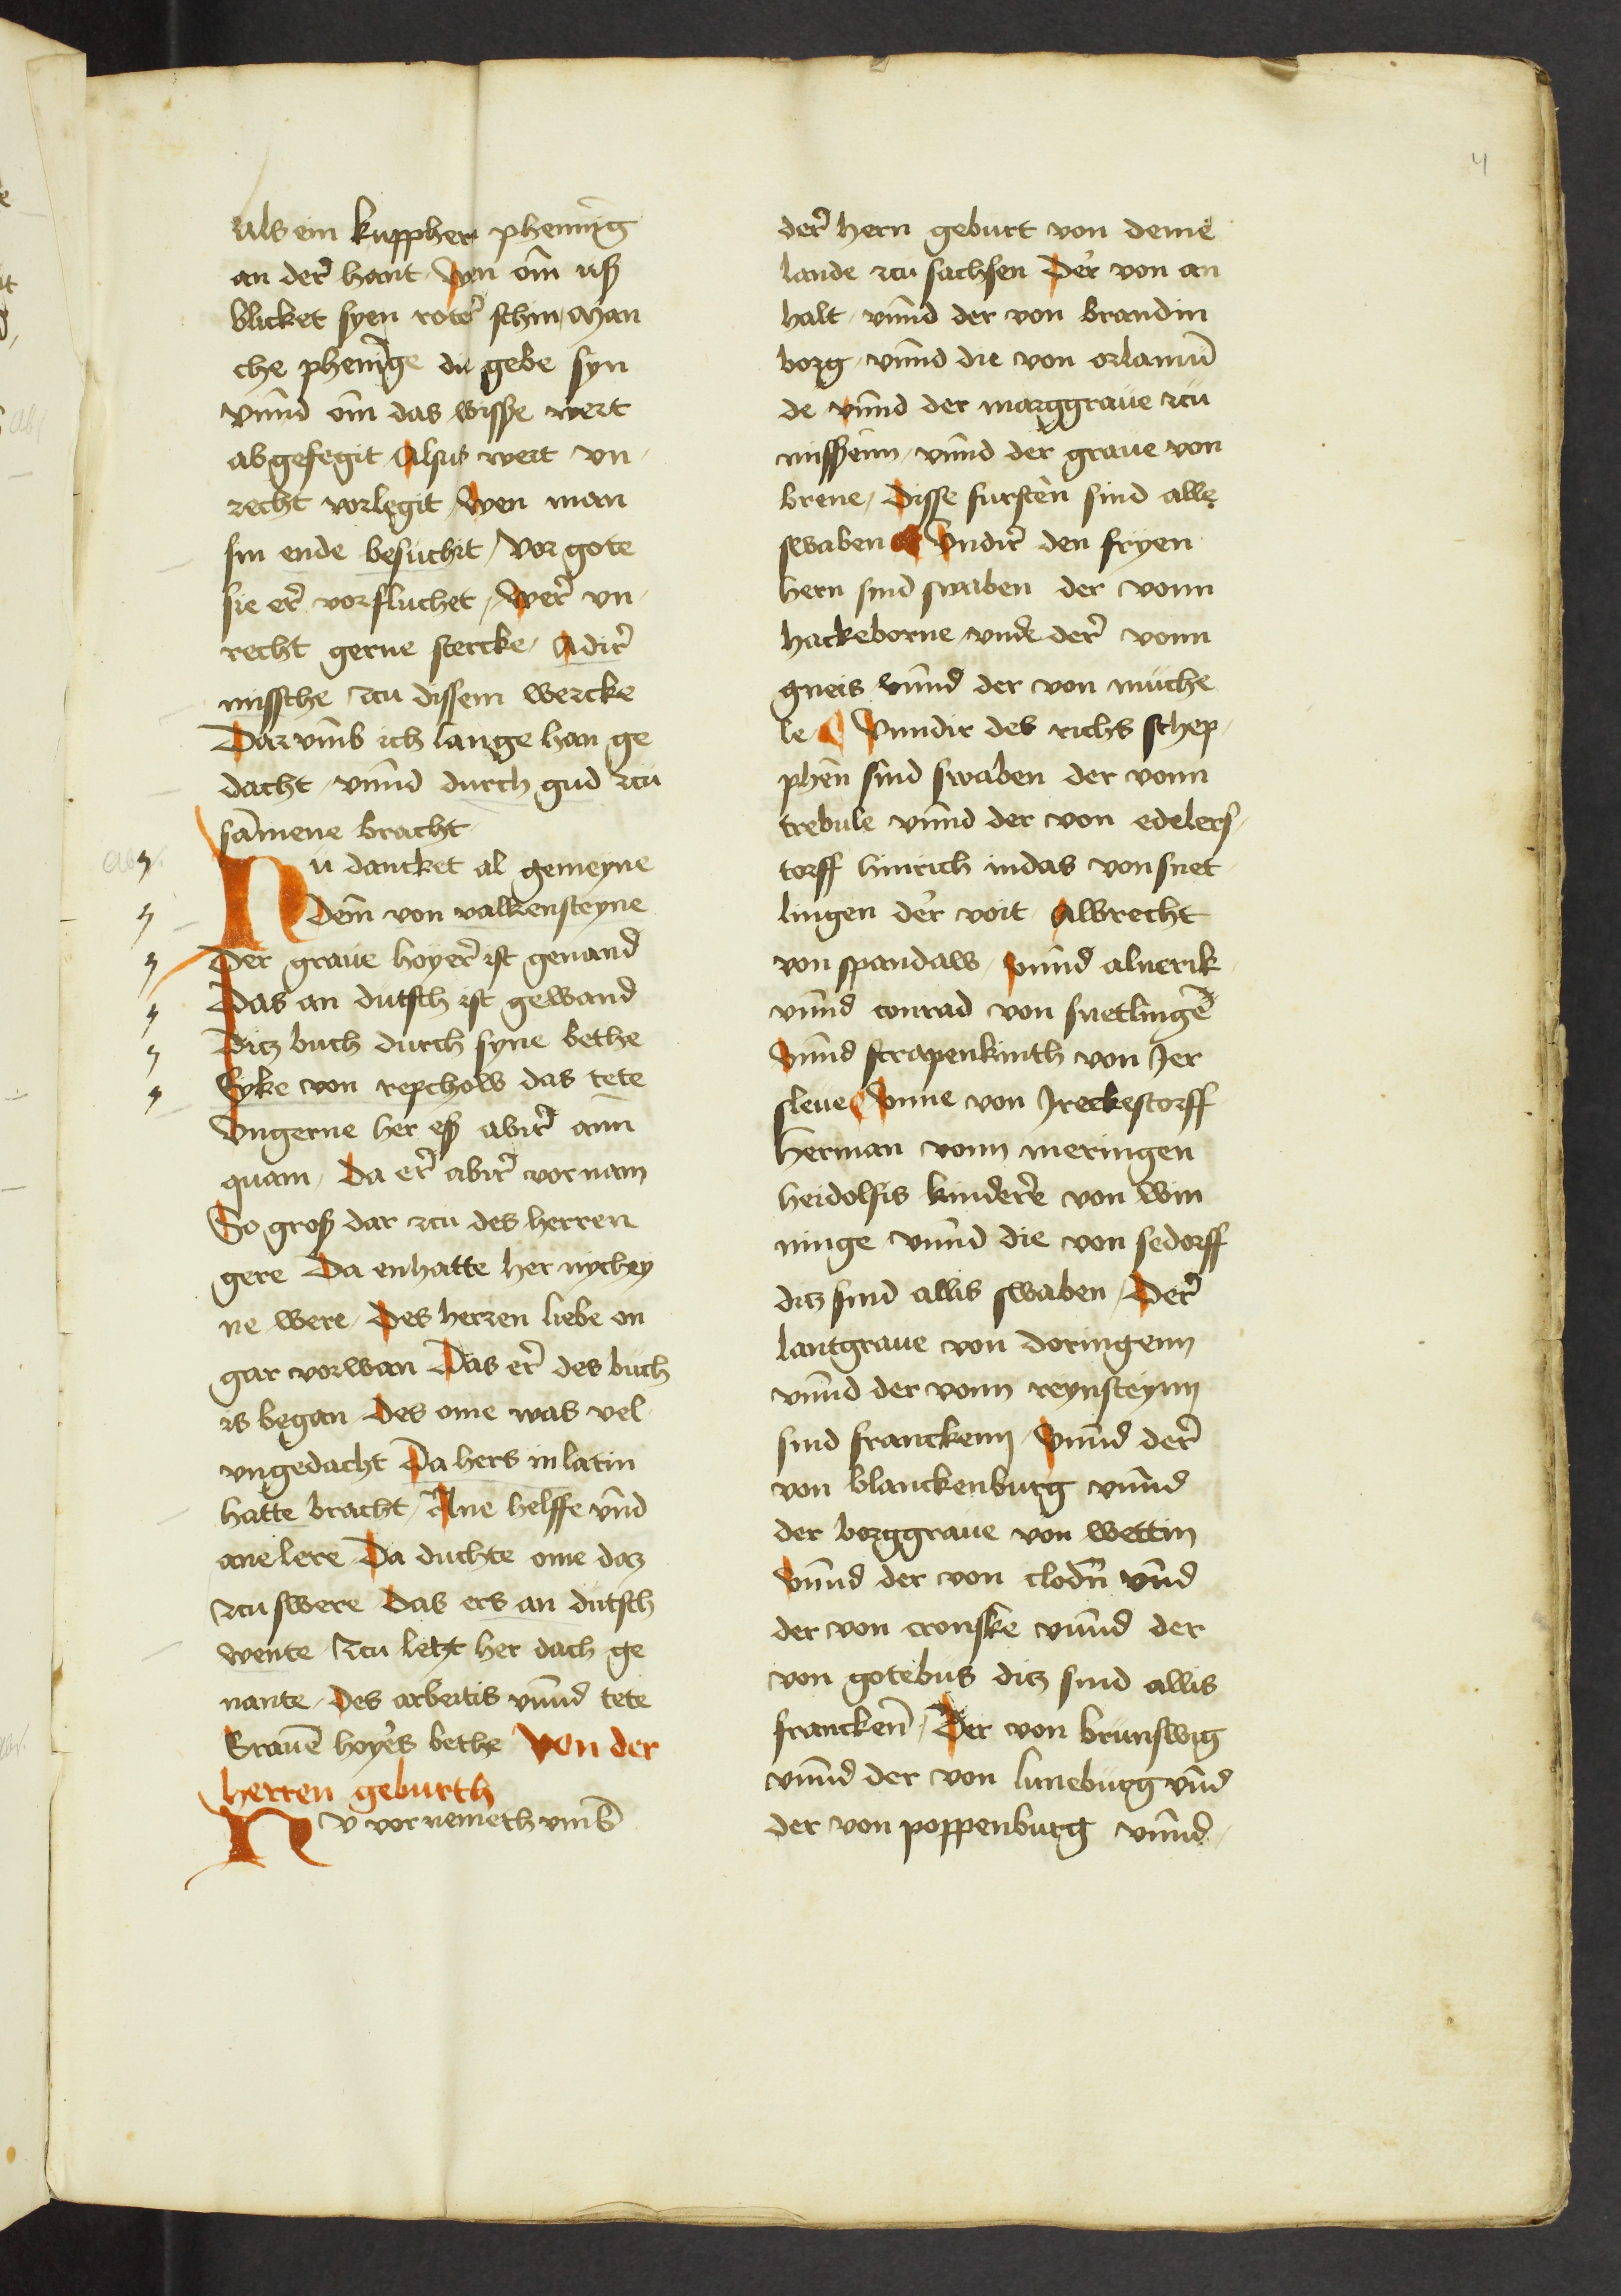 4
Als ein kuppher phennīg
an der hant Wen om uß
blicket syen roter schin Man
che phenīge die gebe syn
vnnd om das wisße wert
abgefegit Alsus wert vn
recht vorlegit Wen man
sin ende besuchit Vor gote
sie er vorfluchet Wer vn
recht gerne stercke Adir
missche zcu dissem wercke
Dar vmb ich lange han ge
dacht vnnd durch gud zcu
samene bracht
Nu dancket al gemeyne
Dem von valkensteyne
Der graue hoyer ist genand
Das an dutsch ist gewand
Ditz buch durch syne bethe
Eyke von repchow das tete
Vngerne her eß abir ann
quam Da er abir vornam
So groß dar zcu des herren
gere Da enhatte her nychey
ne were Des herren liebe on
gar vorwan Das er des buch
is began Des ome was vel
vngedacht Da hers in latin
hatte bracht Ane helffe vnd
ane lere Da duchte ome daz
zcu swere Das ers an dutsch
wente Zcu letzt her dach ge
nante Des arbeitis vnnd tete
Grauē hoyers bethe Von der
herren geburth
Nv vor nemeth vmb
der hern geburt von deme
lande zcu sachsen Der von an
halt vnnd der von brandin
borg vnnd die von orlamū
de vnnd der marggraue zcu
misßenn vnnd der graue von
brene Disse fursten sind alle
swaben Vndir den fryen
hern sind swaben der vonn
hackeborne vnde der vonn
gneis vnnd der von muche
le Vnndir des richs schep
phen sind swaben der vonn
trebule vnnd der von edelers
torff hinrich iudas von snet
lingen der voit Albrecht
von spandaw vnnd aluerik
vnnd conrad von snetlingē
Vnnd scrapenkinth von Jer
sleue Anne von Jreckestorff
Herman vonn meringen
heidolfis kindere von win
ninge vnnd die von sedorff
ditz sind allis swaben Der
lantgraue von doringenn
vnnd der vonn reynsteynn
sind franckenn Vnnd der
von blanckenburg vnnd
der borggraue von wettin
Vnnd der von clodn vnd
der von cronske vnnd der
von gotebus ditz sind allis
franckē Der von brunswig
vnnd der von luneburg vnd
der von poppenburg vnnd